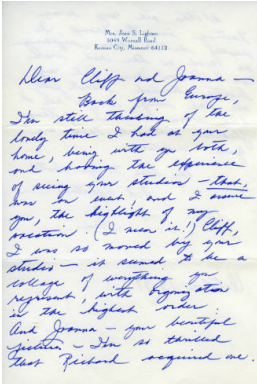 Mrs. Jean S. Lighton
5049 Wornall Road
Kansas City, Missouri 64112
Dear Cliff and Joanna —
Back from Europe,
I'm still thinking of the
lovely time I had at your
home, being with you both,
and having the experience
of seeing your studios — that,
was an event, and I assure
you, the highlight of my
vacation. (I mean it!) Cliff,
I was so moved by your
studio — it seemed to be a
collage of everything you
represent, with organization
in the highest order.
And Joanna — your beautiful
pictures — I'm so thrilled
that Richard acquired one.